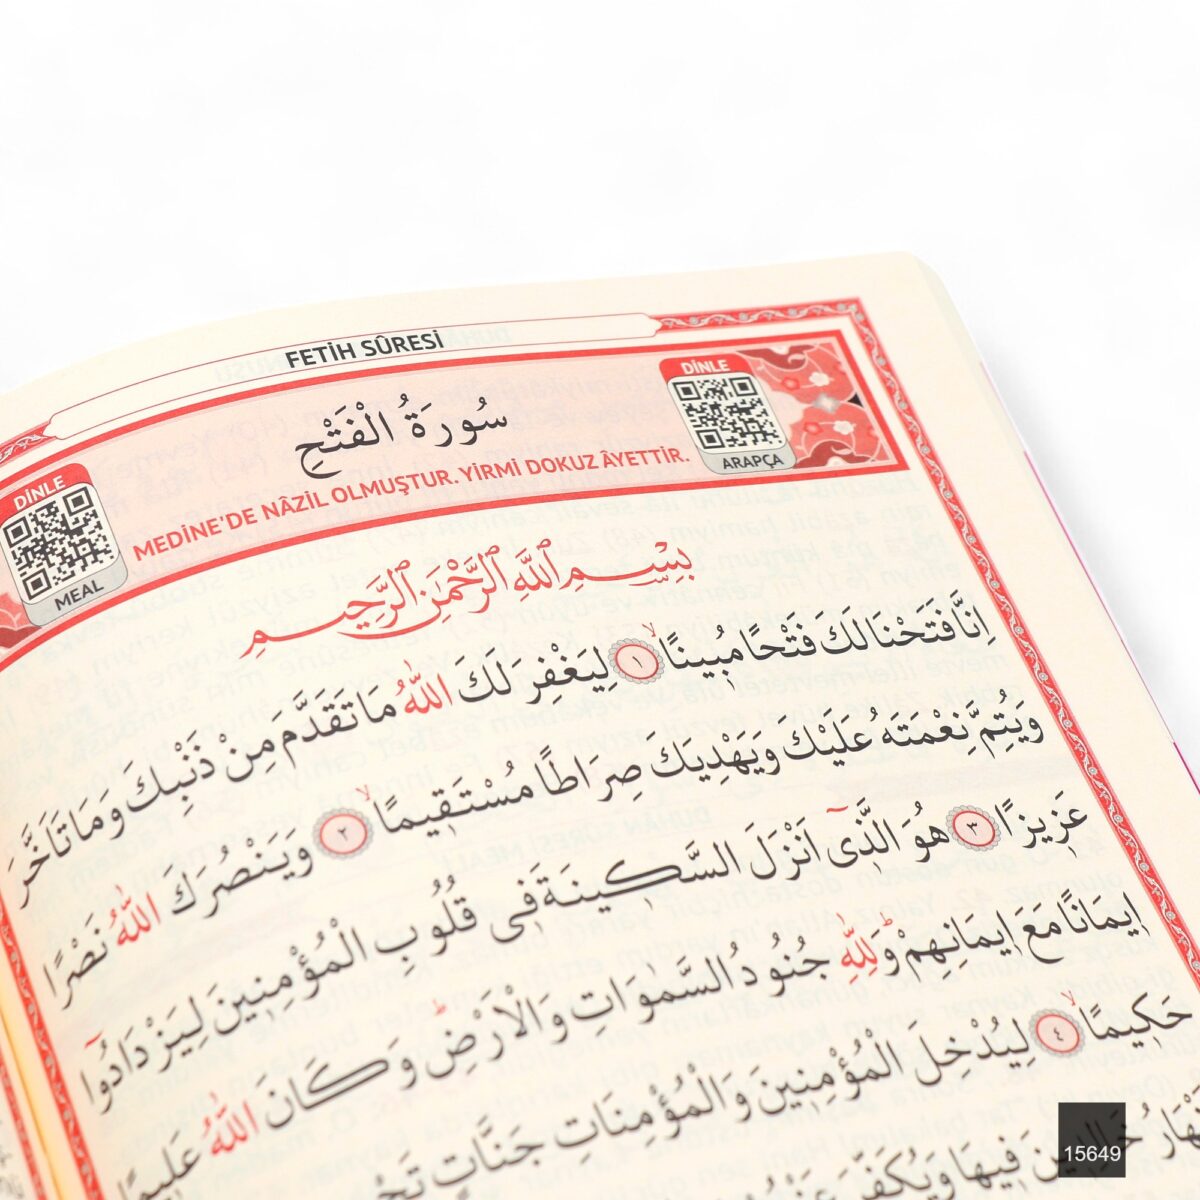 FETİH SÛRESİ
DİNLE
ARAPÇA
سُورَةُ الْفَتْحِ
MEDİNE'DE NÂZİL OLMUŞTUR. YİRMİ DOKUZ ÂYETTİR.
DİNLE
MEAL
بِسْمِ اللّٰهِ الرَّحْمٰنِ الرَّحِيمِ
اِنَّا فَتَحْنَا لَكَ فَتْحًا مُبِينًاۙ ﴿١﴾ لِيَغْفِرَ لَكَ اللّٰهُ مَا تَقَدَّمَ مِنْ ذَنْبِكَ وَمَا تَاَخَّرَ
وَيُتِمَّ نِعْمَتَهُ عَلَيْكَ وَيَهْدِيَكَ صِرَاطًا مُسْتَقِيمًاۙ ﴿٢﴾ وَيَنْصُرَكَ اللّٰهُ نَصْرًا
عَزِيزًا ﴿٣﴾ هُوَ الَّذ۪ٓى اَنْزَلَ السَّكِينَةَ فِى قُلُوبِ الْمُؤْمِنِينَ لِيَزْدَادُٓوا
اِيمَانًا مَعَ اِيمَانِهِمْۜ وَلِلّٰهِ جُنُودُ السَّمٰوَاتِ وَالْاَرْضِۜ وَكَانَ اللّٰهُ عَلِيمًا
حَكِيمًاۙ ﴿٤﴾ لِيُدْخِلَ الْمُؤْمِنِينَ وَالْمُؤْمِنَاتِ جَنَّاتٍ
فِيهَا وَيُكَفِّرَ
15649